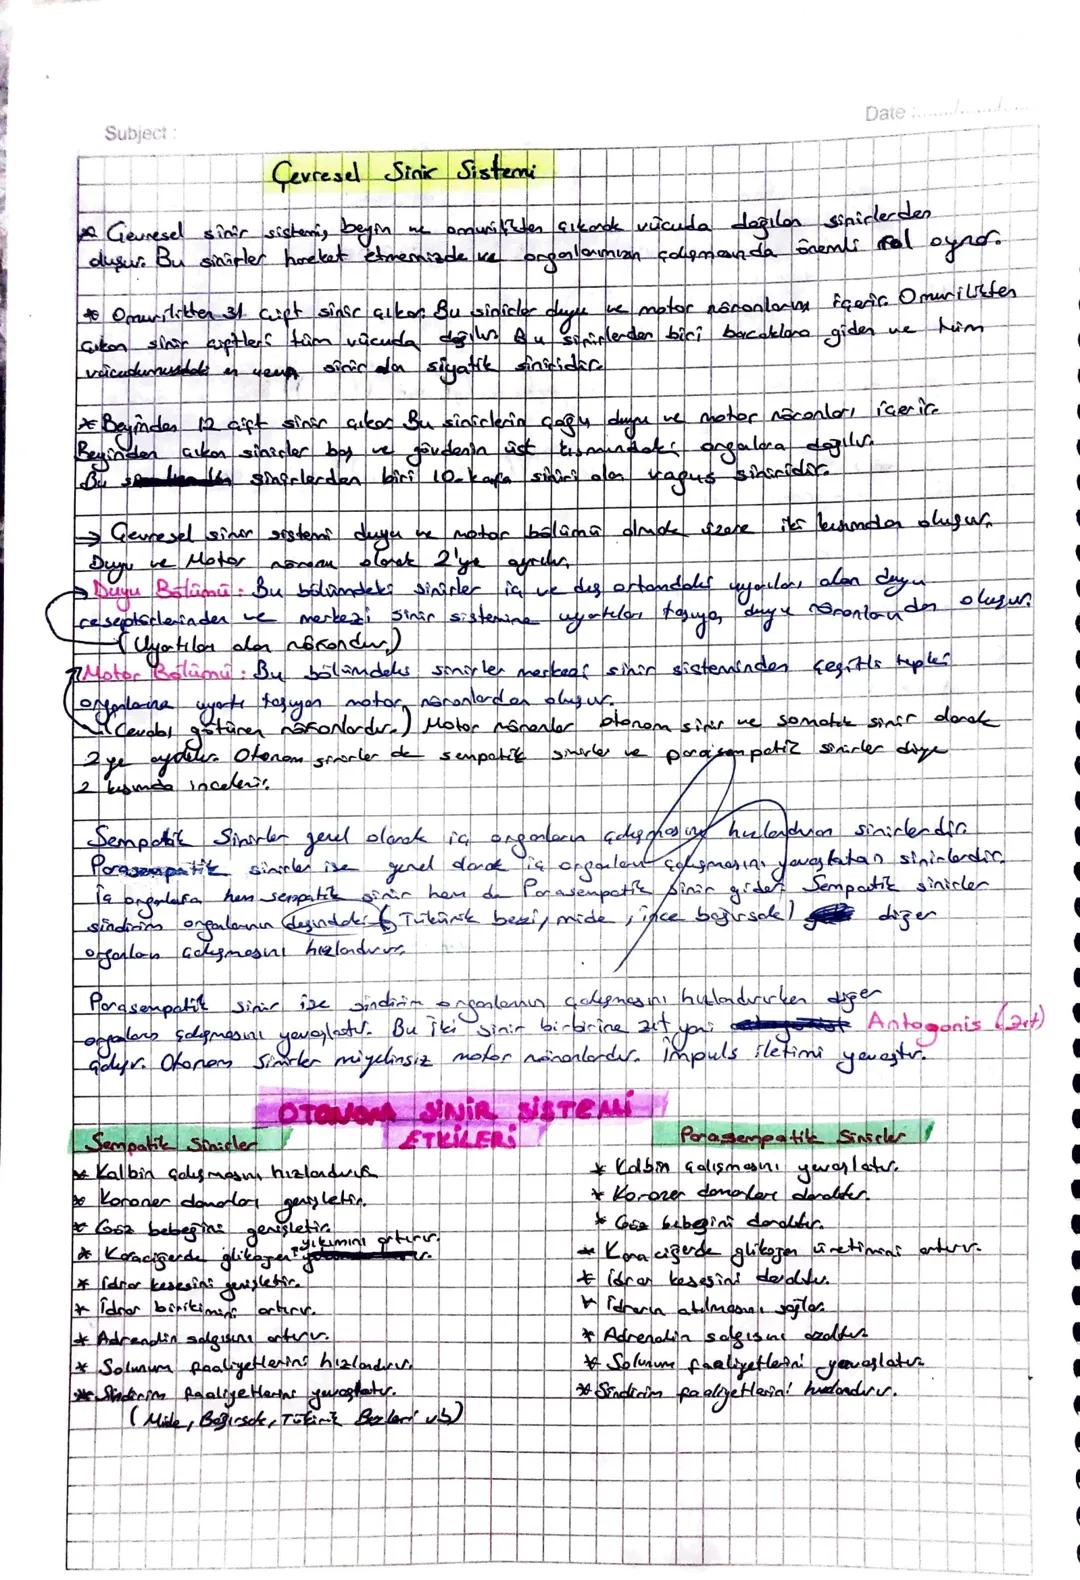 Subject :
Date :
Çevresel Sinir Sistemi
* Çevresel sinir sistemi, beyin ve omurilikten çıkarak vücuda dağılan sinirlerden
oluşur. Bu sinirler hareket etmemizde ve organlarımızın çalışmasında önemli rol oynar.
* Omurilikten 31 çift sinir çıkar. Bu sinirler duyu ve motor nöronlarını içerir. Omurilikten
Çıkan sinir çiftleri tüm vücuda dağılır. Bu sinirlerden biri bacaklara giden ve tüm
vücudumuzdaki en uzun sinir olan siyatik siniridir.
* Beyinden 12 çift sinir çıkar. Bu sinirlerin çoğu duyu ve motor nöronları içerir.
Beyinden çıkan sinirler baş ve gövdenin üst kısmındaki organlara dağılır.
Bu sinirlerden biri 10. kafa siniri olan vagus siniridir.
→ Çevresel sinir sistemi duyu ve motor bölümü olmak üzere iki kısımdan oluşur.
Duyu ve Motor nöronu olarak 2'ye ayrılır.
→ Duyu Bölümü : Bu bölümdeki sinirler iç ve dış ortamdaki uyarıları alan duyu
reseptörlerinden ve merkezi sinir sistemine uyartıları taşıyan duyu nöronlarından oluşur.
(Uyartıları alan nörondur.)
Motor Bölümü : Bu bölümdeki sinirler merkezi sinir sisteminden çeşitli tepki
organlarına uyartı taşıyan motor nöronlardan oluşur.
(Cevabı götüren nöronlardır.) Motor nöronlar otonom sinir ve somatik sinir olarak
2 ye ayrılır. Otonom sinirler de sempatik sinirler ve parasempatik sinirler diye
2 kısımda incelenir.
Sempatik Sinirler genel olarak iç organların çalışmasını hızlandıran sinirlerdir.
Parasempatik sinirler ise genel olarak iç organların çalışmasını yavaşlatan sinirlerdir.
İç organlara hem sempatik sinir hem de Parasempatik sinir gider. Sempatik sinirler
sindirim organlarının dışındaki (Tükürük bezi, mide, ince bağırsak) diğer
organların çalışmasını hızlandırır.
Parasempatik sinir ise sindirim organlarının çalışmasını hızlandırırken diğer
organların çalışmasını yavaşlatır. Bu iki sinir birbirine zıt yani Antagonis (zıt)
çalışır. Otonom Sinirler miyelinsiz motor nöronlardır. İmpuls iletimi yavaştır.
OTONOM SİNİR SİSTEMİ
ETKİLERİ
Sempatik Sinirler
* Kalbin çalışmasını hızlandırır.
* Koroner damarları genişletir.
* Göz bebeğini genişletir.
* Karaciğerde glikojen yıkımını artırır.
* İdrar kesesini genişletir.
* İdrar birikimini artırır.
* Adrenalin salgısını artırır.
* Solunum faaliyetlerini hızlandırır.
* Sindirim faaliyetlerini yavaşlatır.
(Mide, Bağırsak, Tükürük Bezleri vb)
Parasempatik Sinirler
* Kalbin çalışmasını yavaşlatır.
* Koroner damarları daraltır.
* Göz bebeğini daraltır.
* Karaciğerde glikojen üretimini artırır.
* İdrar kesesini daraltır.
* İdrarın atılmasını sağlar.
* Adrenalin salgısını azaltır
* Solunum faaliyetlerini yavaşlatır
* Sindirim faaliyetlerini hızlandırır.